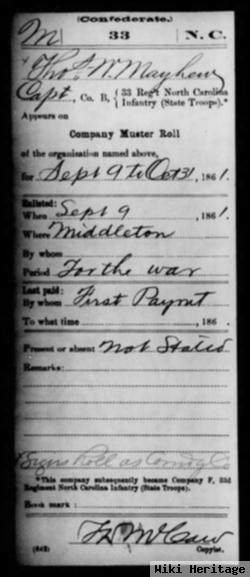 (Confederate.)
M 33 N.C.
Thos. W. Mayhew
Capt, Co. B, 33 Reg't North Carolina Infantry (State Troops).*
Appears on
Company Muster Roll
of the organization named above,
for Sept 9 to Oct 31, 1861.
Enlisted:
When Sept 9, 1861.
Where Middleton
By whom
Period For the war
Last paid:
By whom First Paymt
To what time, 186 .
Present or absent Not Stated
Remarks:
Signs Roll as Comdg Co
*This company subsequently became Company F, 33d
Regiment North Carolina Infantry (State Troops).
Book mark:
(642) Copyist.
Wiki Heritage